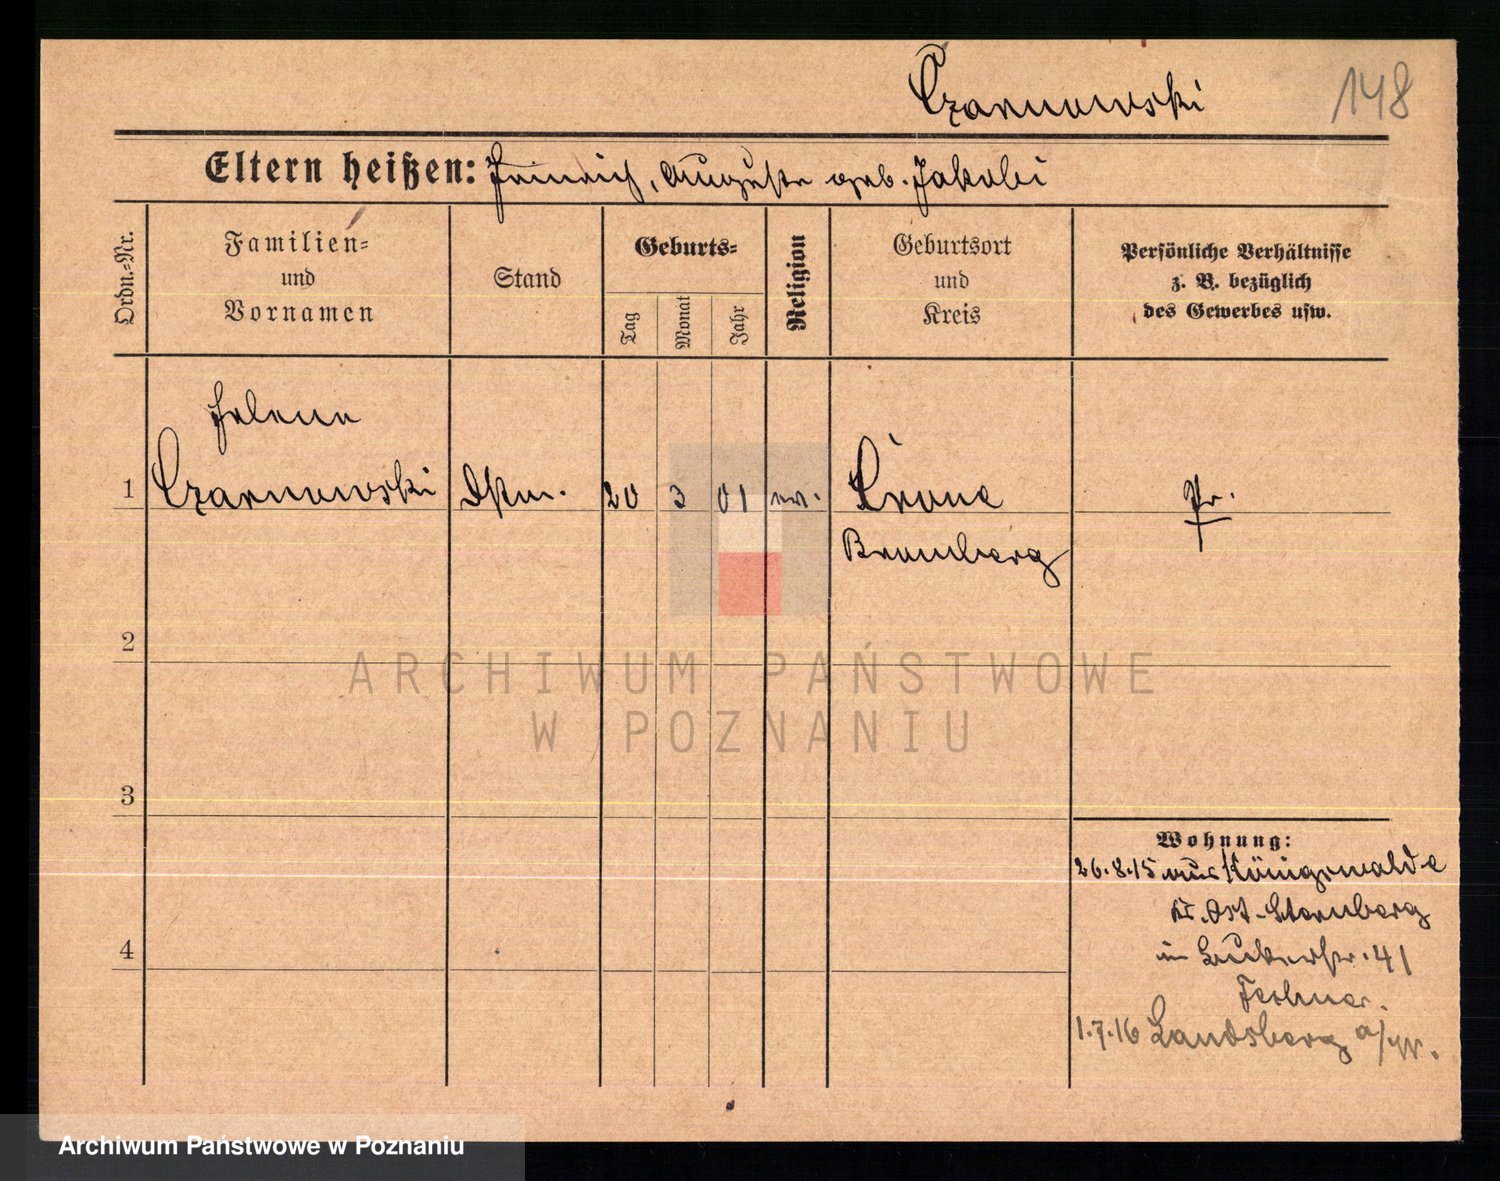 Czarnowski
148
Eltern heißen: Heinrich, Auguste geb. Jakobi
Ordn.=Nr.
Familien=
und
Vornamen
Stand
Geburts=
Tag
Monat
Jahr
Religion
Geburtsort
und
Kreis
Persönliche Verhältnisse
z. B. bezüglich
des Gewerbes usw.
Helene
1 Czarnowski Dstm. 20 3 01 ev. Crone Pr.
Bromberg
2
ARCHIWUM PAŃSTWOWE
W POZNANIU
3
Wohnung:
26.8.15 aus Königswalde
Kr. Ost-Sternberg
in 41
4
1.7.16 Landsberg a/W.
Archiwum Państwowe w Poznaniu